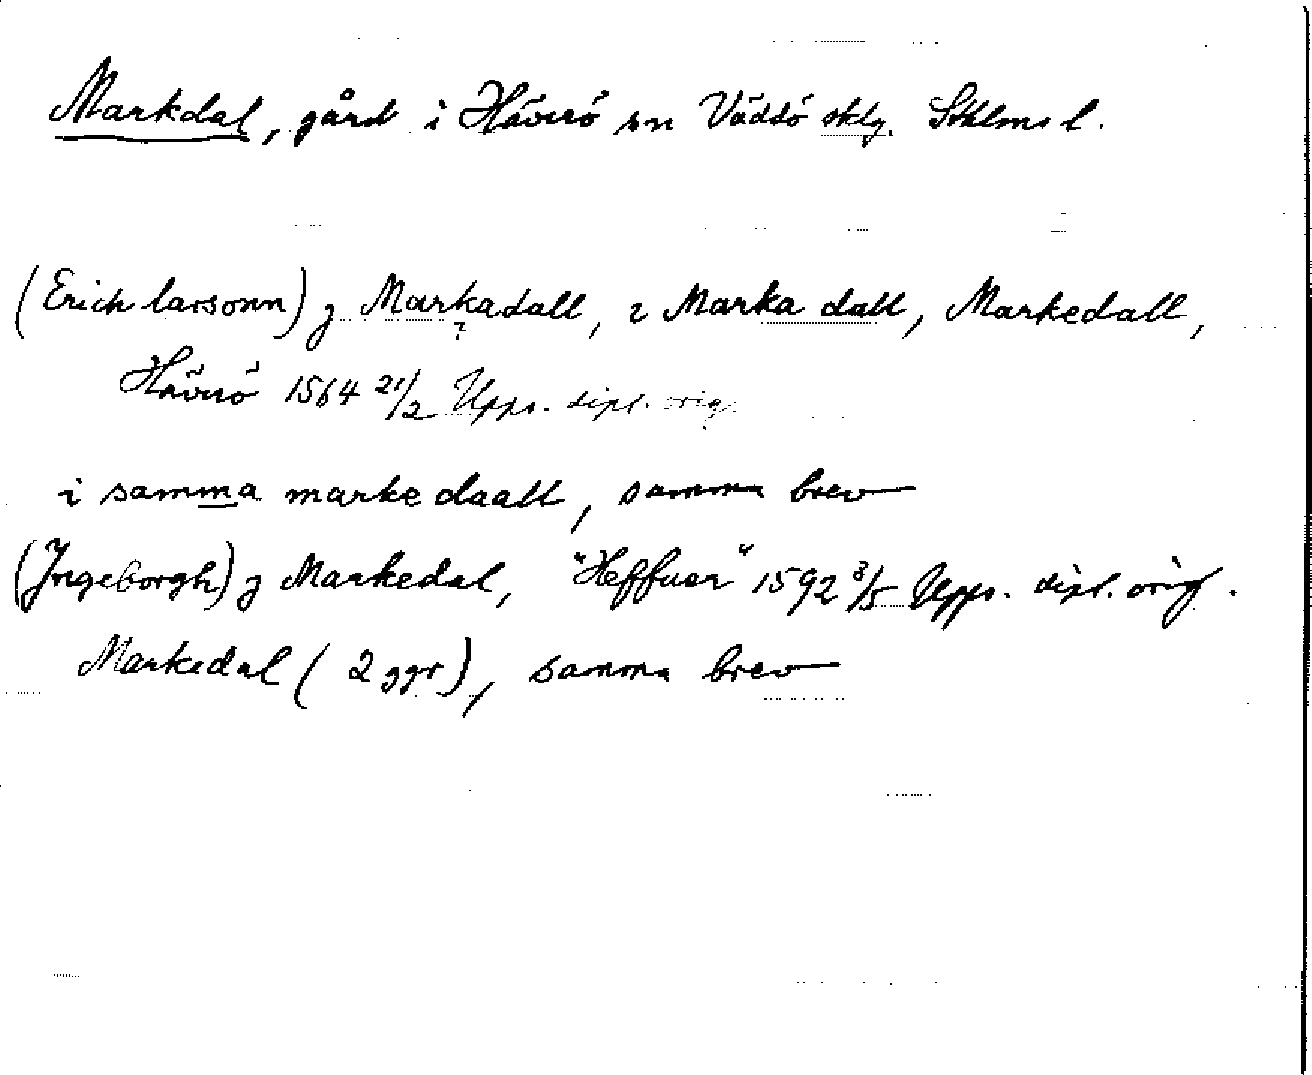 Markdal, gård i Häverö sn Väddö sklg. Sthlms l.
(Erich larsonn) j Markadall, i Marka dall, Markedall,
?
Häverö 1564 21/2 Upps. dipl. orig.
i samma markedaall, samma brev
(Jngeborgh) j Markedal, "Heffuer" 1592 8/5 Upps. dipl. orig.
Markedal (2 ggr), samma brev